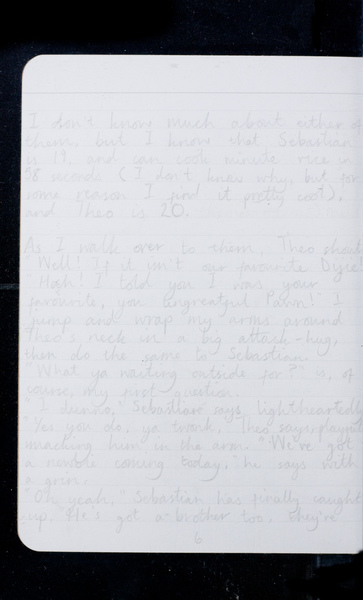 I don't know much about either of
them, but I know that Sebastian
is 19, and can cook minute rice in
58 seconds (I don't know why, but for
some reason I find it pretty cool),
and Theo is 20.
As I walk over to them, Theo shouts
"Well! If it isn't our favourite
"Hah! I told you I was your
favourite, you ungreatful Pawn!" I
jump and wrap my arms around
Theo's neck in a big attack-hug,
then do the same to Sebastian.
"What ya waiting outside for?" is, of
course, my first question.
"I dunno," Sebastian says, lightheartedly
"Yes you do, ya twonk," Theo says, playfully
smacking him in the arm. "We've got
a newbie coming today," he says with
a grin.
"Oh yeah," Sebastian has finally caught
up. "He's got a brother too, they're
6